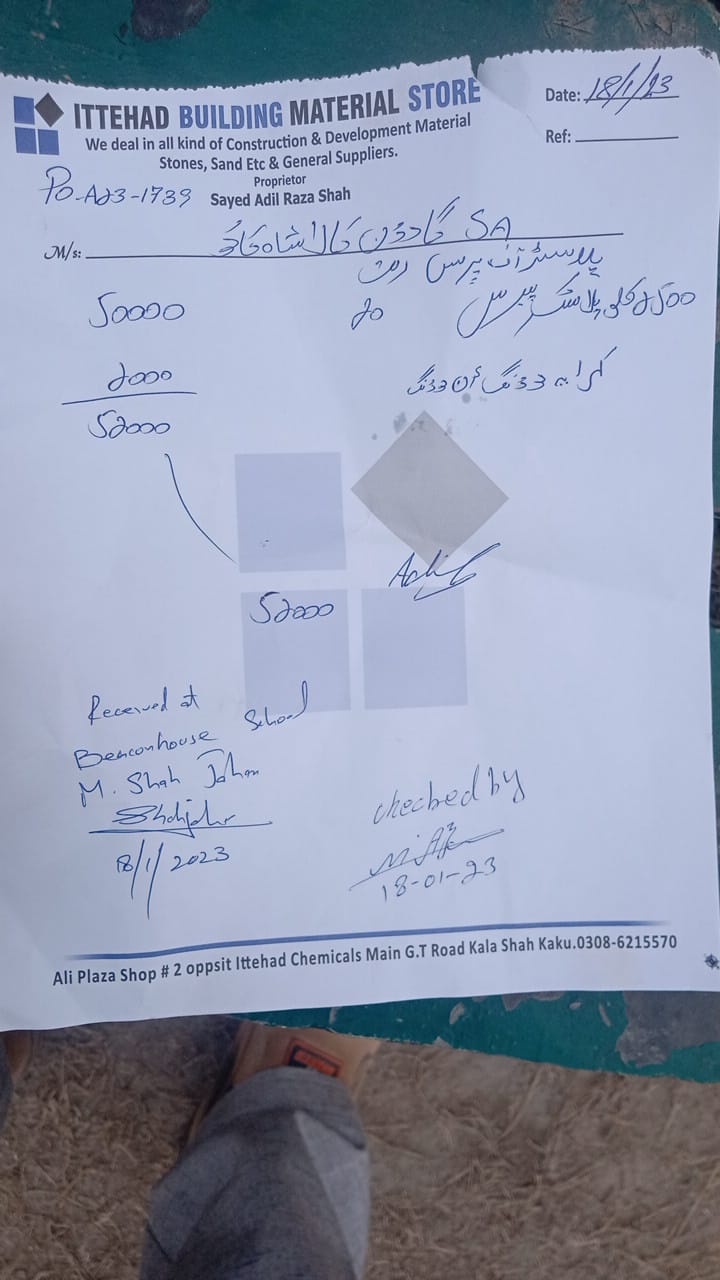 ITTEHAD BUILDING MATERIAL STORE
We deal in all kind of Construction & Development Material
Stones, Sand Etc & General Suppliers.
Proprietor
Sayed Adil Raza Shah
Date: 18/1/23
Ref:
Po-A23-1739
M/s: SA گارڈن کالا شاہ کاکو
پلاسٹر آف پیرس
2500 کلو پلاسٹر پیرس 20 50000
کرایہ 2000
52000
Adil
52000
Received at
Beaconhouse School
M. Shah Jahan
18/1/2023
checked by
18-01-23
Ali Plaza Shop # 2 oppsit Ittehad Chemicals Main G.T Road Kala Shah Kaku.0308-6215570